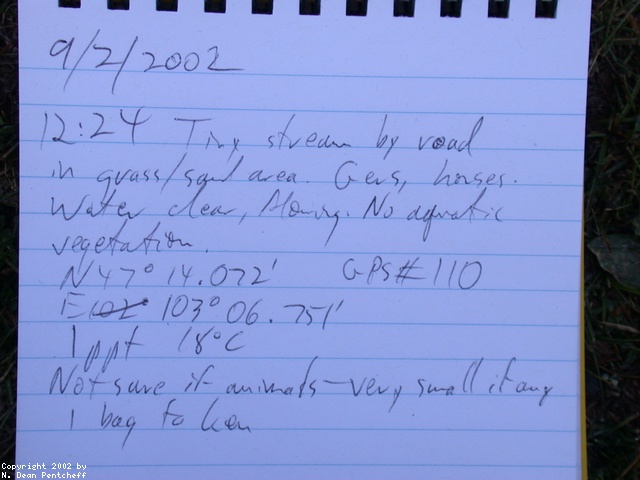 9/2/2002
12:24 Tiny stream by road
in grass/sand area. Gers, horses.
Water clear, flowing. No aquatic
vegetation.
N 47° 14.072' GPS#110
E 102° 103° 06.751'
1 ppt 18°C
Not sure if animals - very small if any
1 bag to Ken
Copyright 2002 by
N. Dean Pentcheff